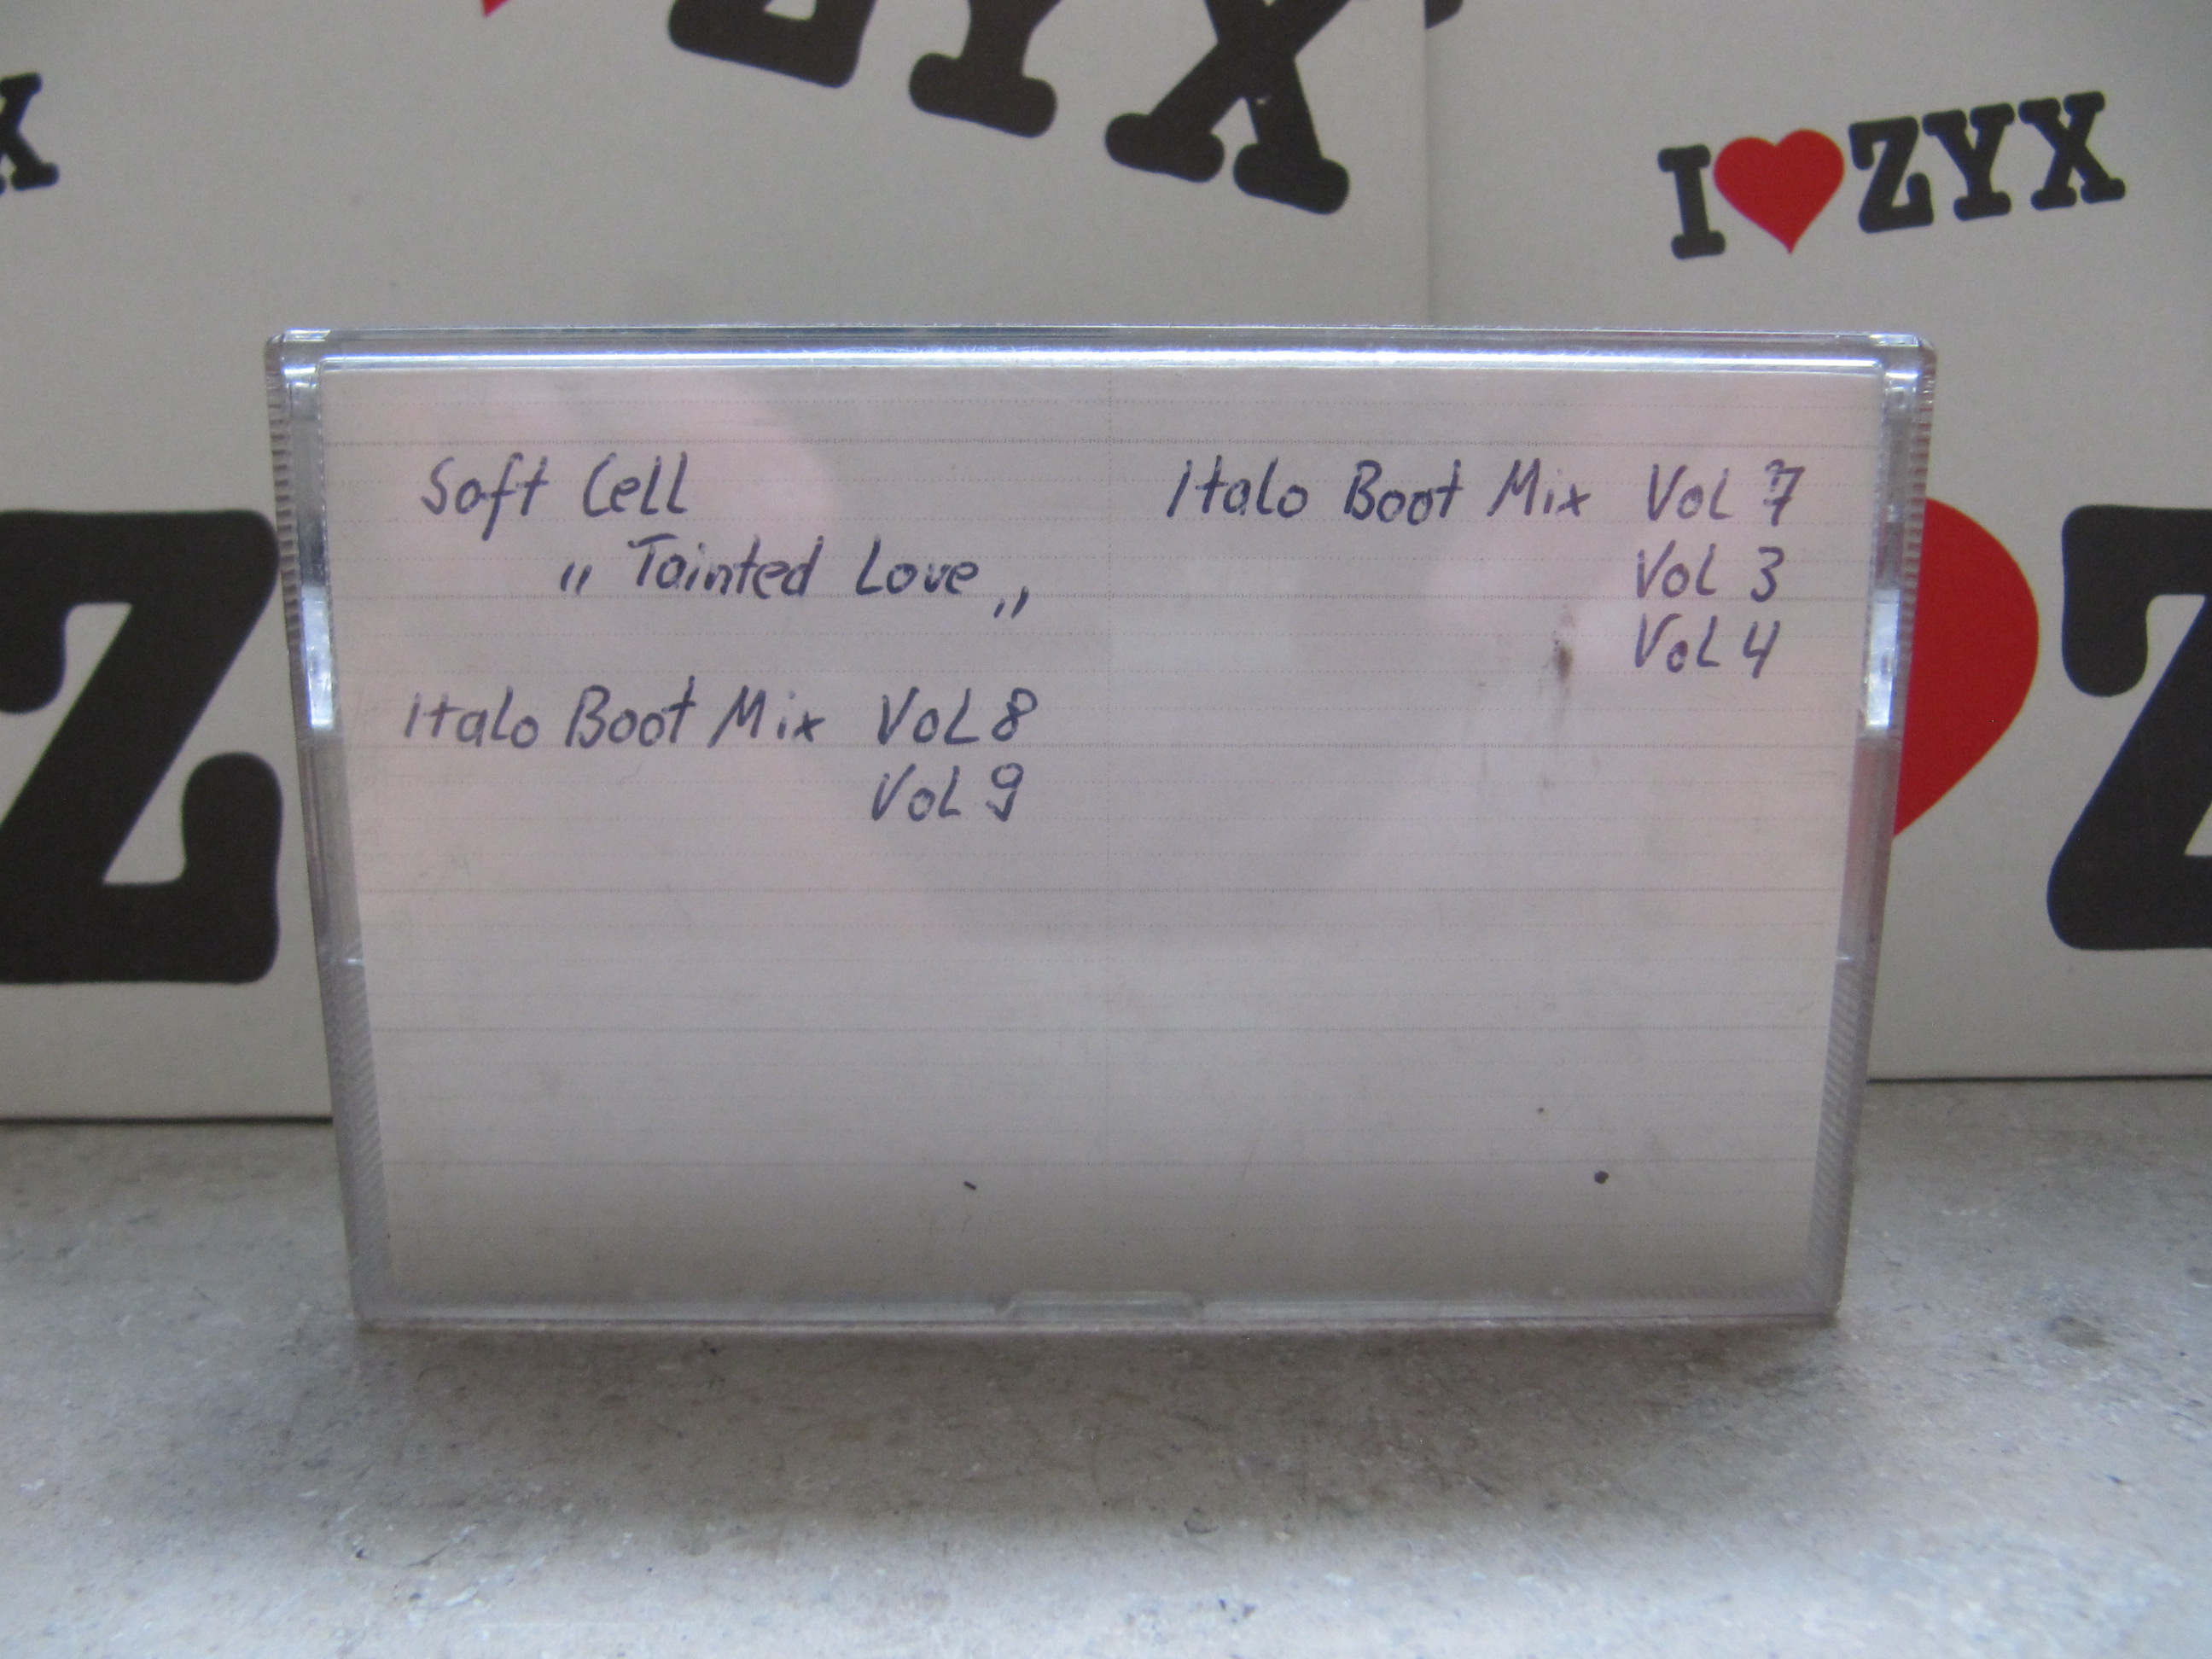 X
ZYX
I ♥ ZYX
Soft Cell
„ Tainted Love „
Italo Boot Mix Vol 8
Vol 9
Italo Boot Mix Vol 7
Vol 3
Vol 4
Z
Z